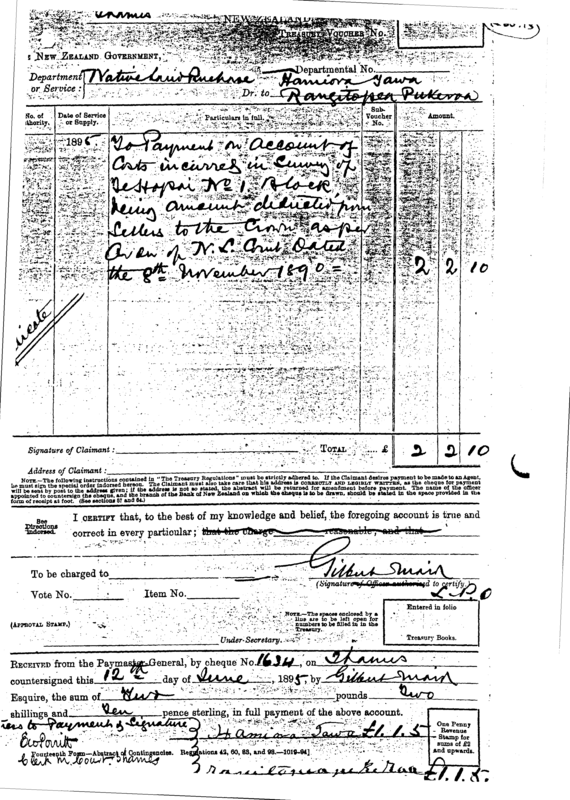 Thames
NEW ZEALAND
TREASURY VOUCHER No.
NEW ZEALAND GOVERNMENT,
Departmental No.
Department or Service: Native Land Purchase
Hamiora Tawa
Dr. to Rangitopea Pukeroa
No. of Authority. Date of Service or Supply. Particulars in full. Sub-Voucher No. Amount.
1895 To Payment on Account of
Costs incurred in Survey of
Te Hopai No 1. Block
being amount deducted from
Sellers to the Crown as per
Order of N. L. Court Dated
the 8th November 1890 = 2 2 10
Signature of Claimant: TOTAL £ 2 2 10
Address of Claimant:
NOTE.—The following instructions contained in "The Treasury Regulations" must be strictly adhered to. If the Claimant desires payment to be made to an Agent,
he must sign the special order indorsed hereon. The Claimant must also take care that his address is CORRECTLY AND LEGIBLY WRITTEN, as the cheque for payment
will be sent by post to the address given; if the address is not so stated, the abstract will be returned for amendment before payment. The name of the officer
appointed to countersign the cheque, and the branch of the Bank of New Zealand on which the cheque is to be drawn, should be stated in the space provided in the
form of receipt at foot. (See sections 57 and 64.)
See Directions Indorsed.
I CERTIFY that, to the best of my knowledge and belief, the foregoing account is true and
correct in every particular; that the charge reasonable; and that
To be charged to Gilbert Mair
(Signature of Officer authorised to certify.)
L.P.O
Vote No. Item No.
NOTE.—The spaces enclosed by a
line are to be left open for
numbers to be filled in in the
Treasury.
Entered in folio
Treasury Books.
(APPROVAL STAMP.)
Under-Secretary.
RECEIVED from the Paymaster-General, by cheque No. 1634, on Thames
countersigned this 12th day of June, 1895 by Gilbert Mair
Esquire, the sum of Two pounds Two
shillings and Ten pence sterling, in full payment of the above account.
to Payment & Signature
Hamiora Tawa £1.1.5
Clerk M. Court Thames
Fourteenth Form—Abstract of Contingencies. Regulations 42, 60, 85, and 98.—1019-94]
£1.1.5.
One Penny
Revenue
Stamp for
sums of £2
and upwards.